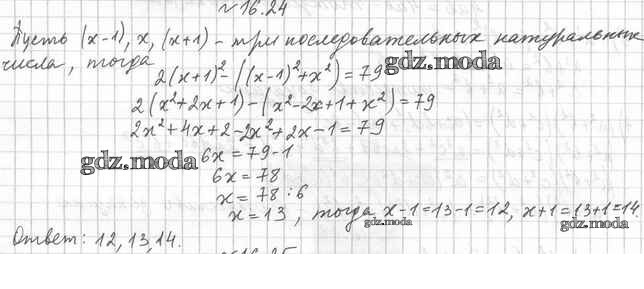 №16.24
Пусть (x-1), x, (x+1) - три последовательных натуральных
числа, тогда
2(x+1)²-((x-1)²+x²)=79
gdz.moda
2(x²+2x+1)-(x²-2x+1+x²)=79
2x²+4x+2-2x²+2x-1=79
gdz.moda
6x=79-1
6x=78
x=78:6
x=13, тогда x-1=13-1=12, x+1=13+1=14.
gdz.moda
gdz.moda
Ответ: 12, 13, 14.
№16.25